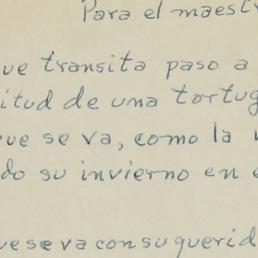 Para el maest
ue transita paso a
itud de una tortug
ue se va, como la
do su invierno en
ue se va con su querid